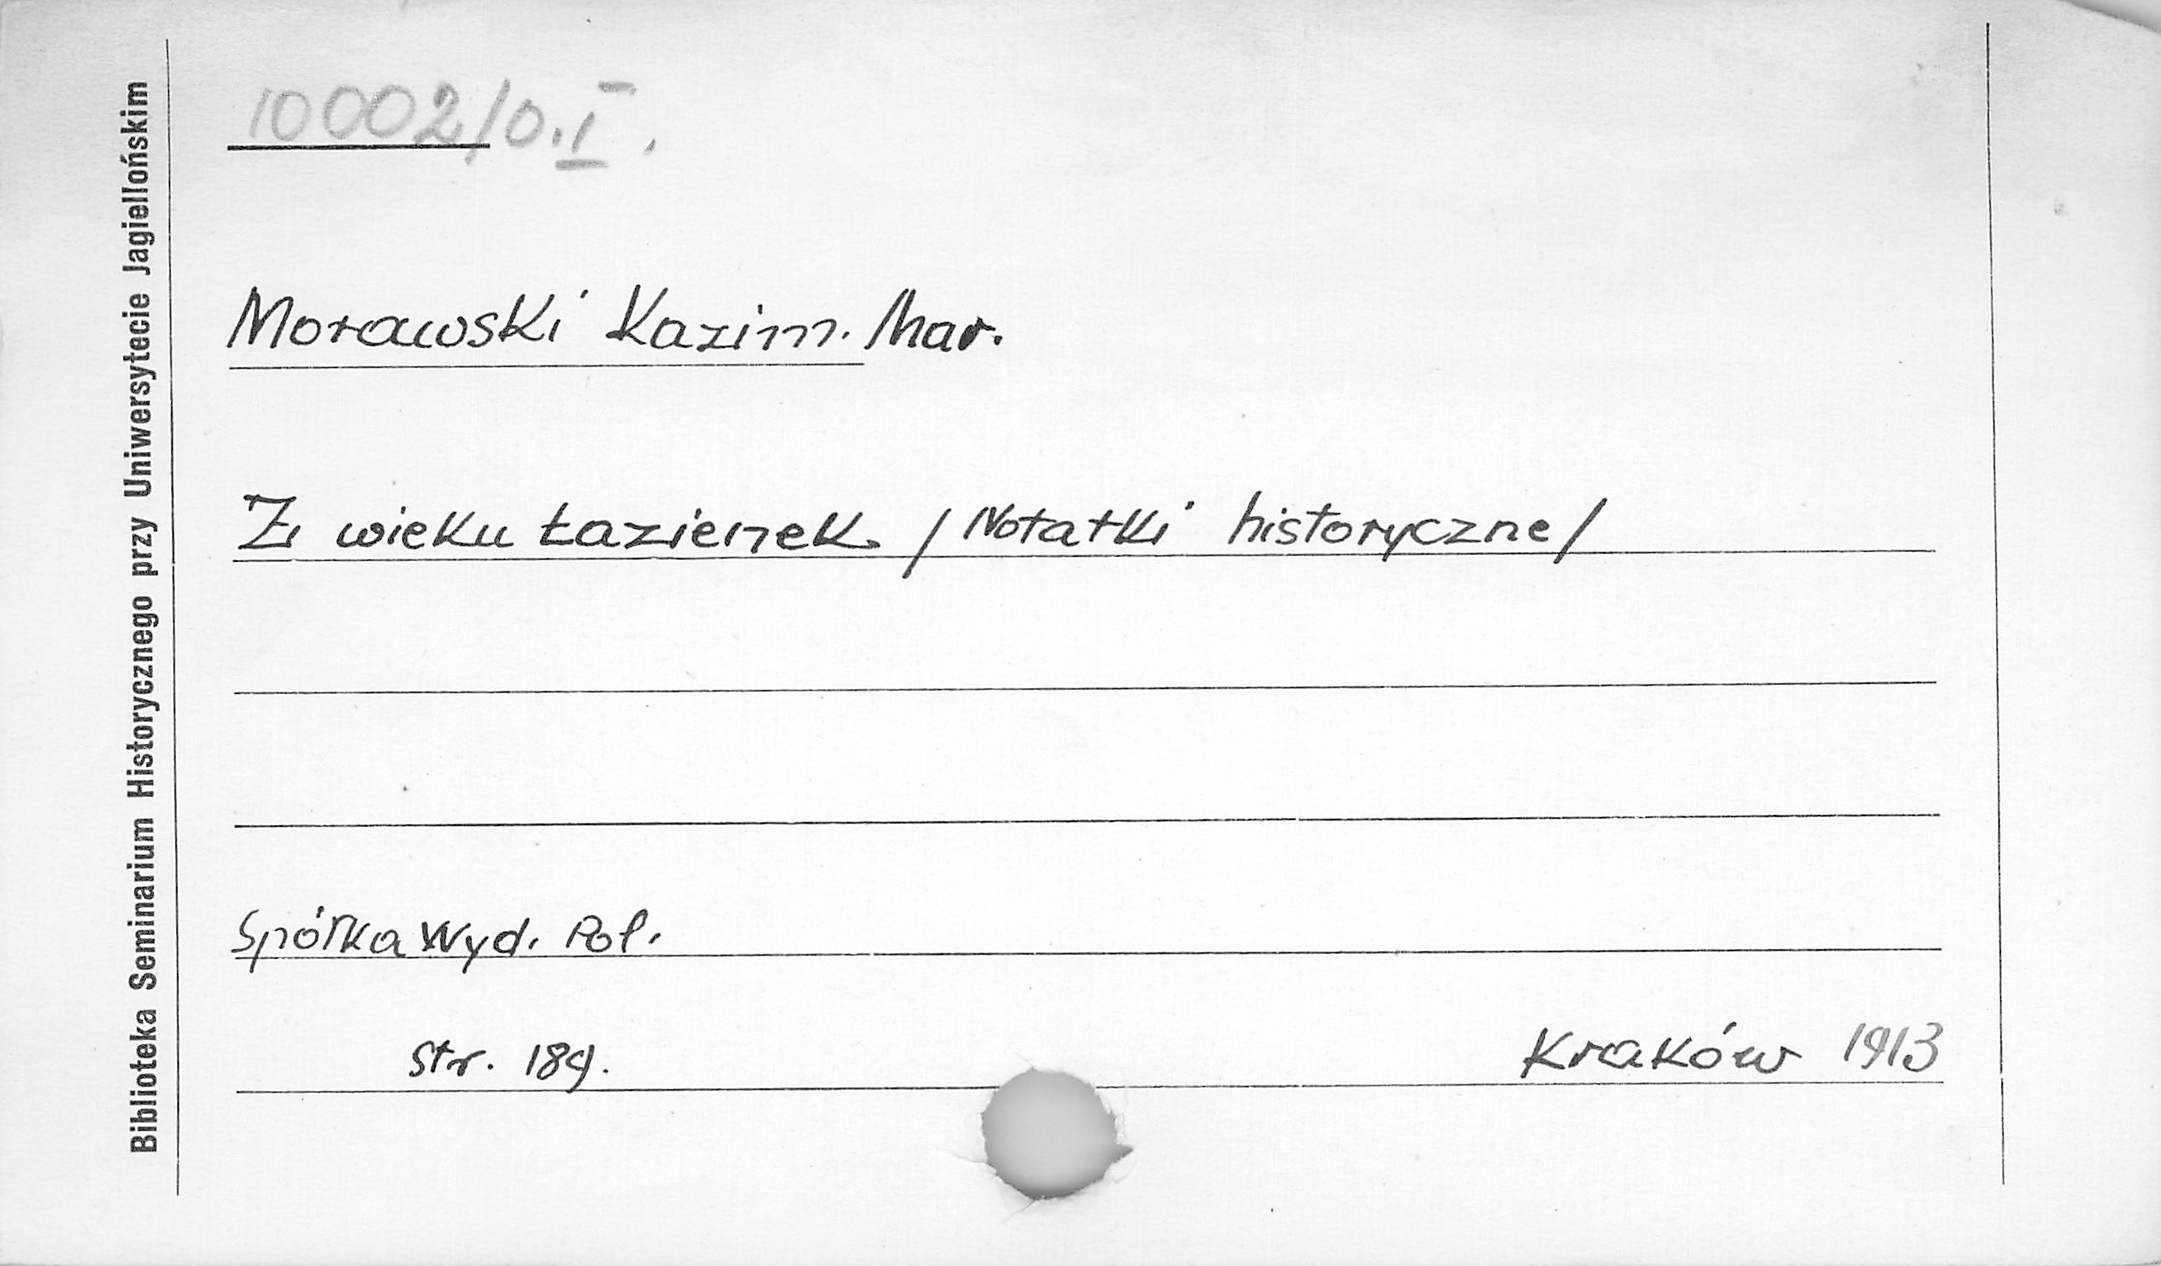 10002/O.I.
Morawski Kazim. Mar.
Z wieku Łazienek. /Notatki historyczne/
Spółka Wyd. Pol.
str. 189.
Kraków 1913
Biblioteka Seminarium Historycznego przy Uniwersytecie Jagiellońskim